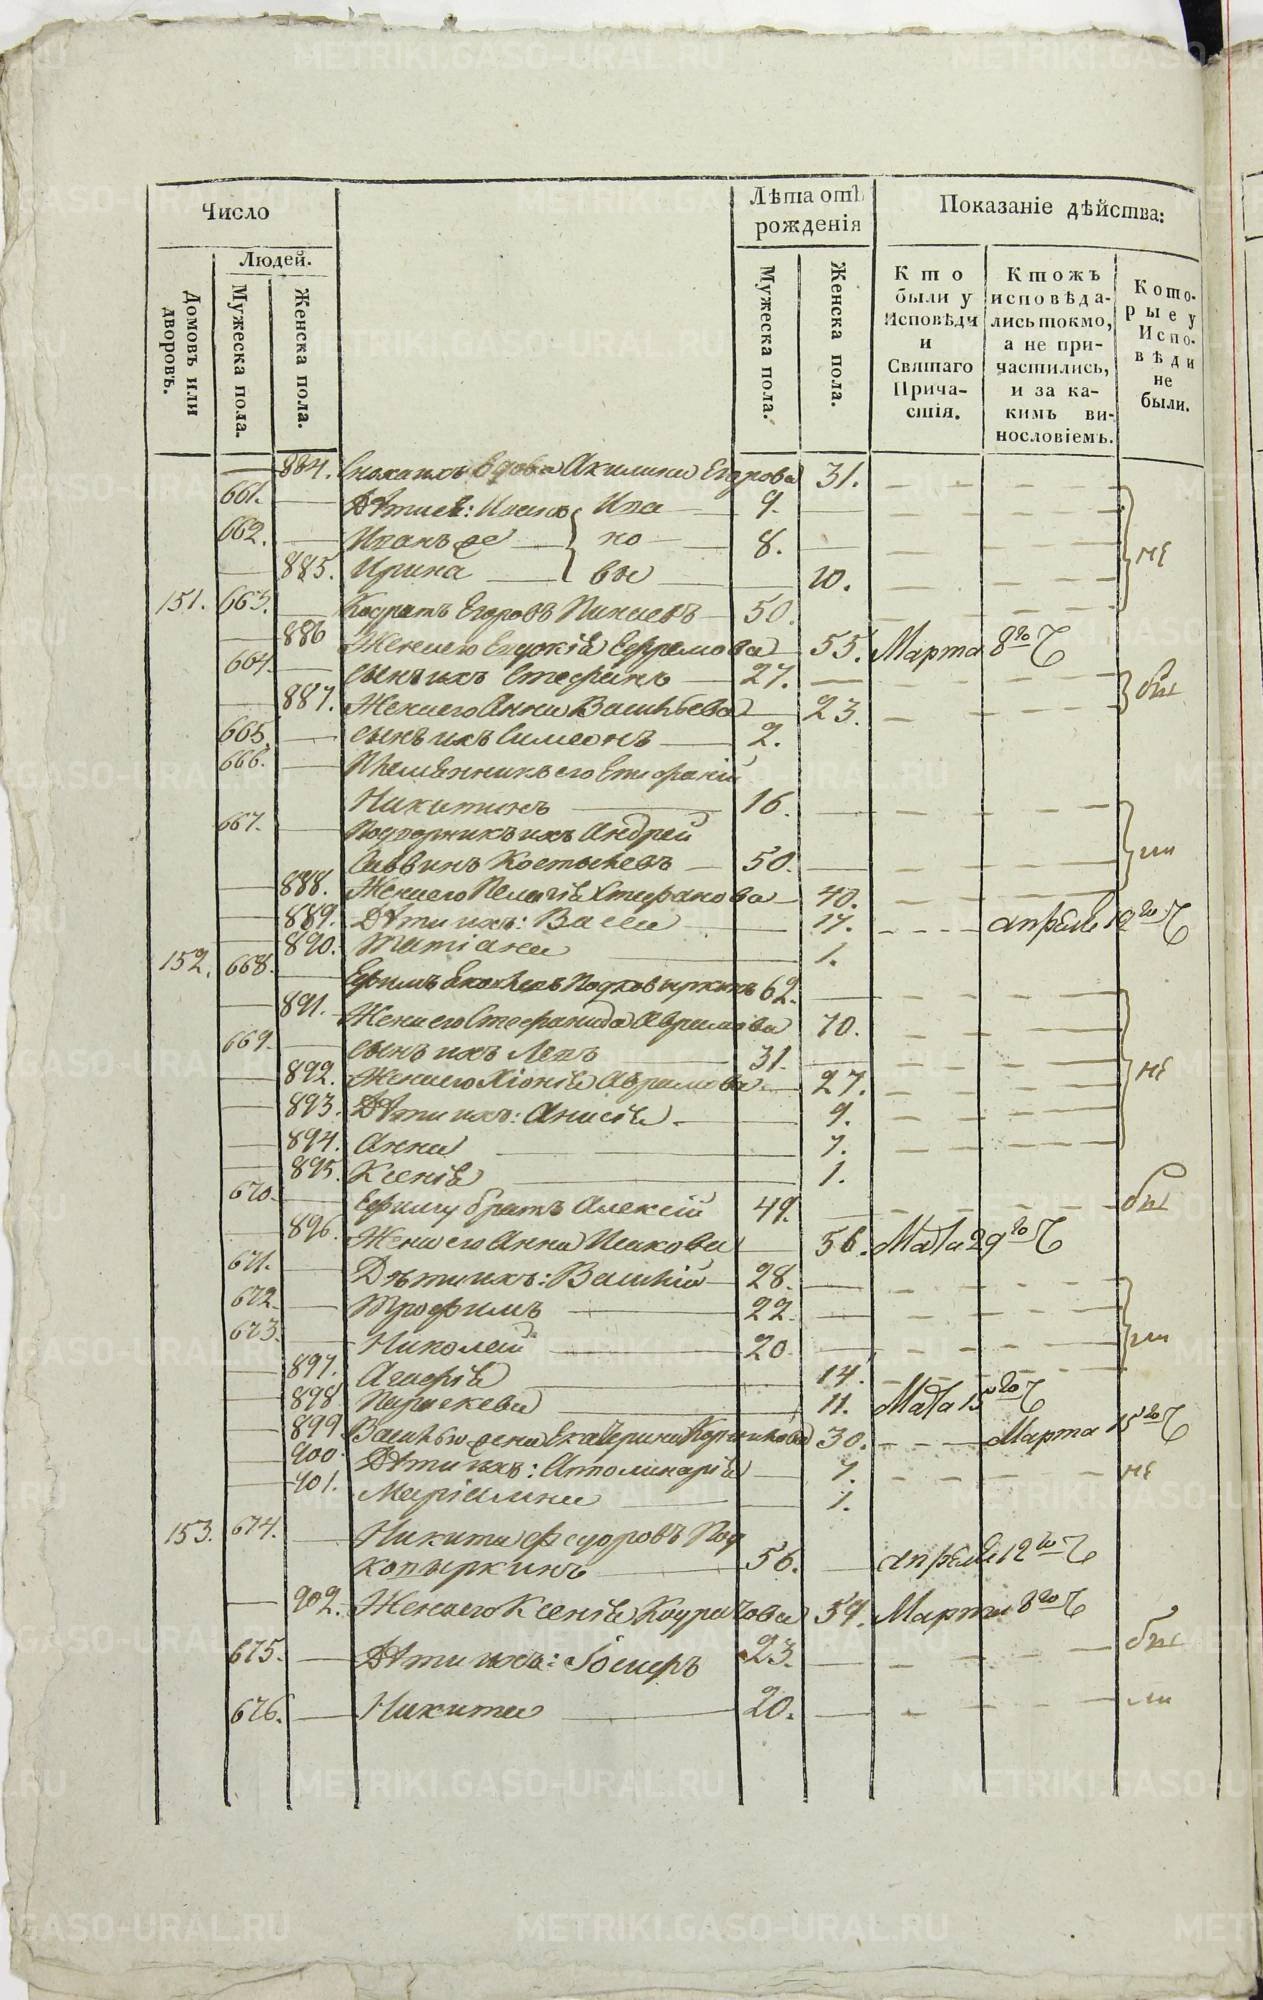 Число
Лѣта отъ рожденія
Показаніе дѣйства:
Людей.
Домовъ или дворовъ.
Мужеска пола.
Женска пола.
Мужеска пола.
Женска пола.
Кто были у Исповѣди и Святаго Прича-стія.
Ктожъ исповѣда-лись токмо, а не при-частились, и за ка-кимъ ви-нословіемъ.
Кото-рые у Испо-вѣди не были.
884. вдова Акилина Егорова 31.
661. Дѣти ея: Иванъ Ива 9.
662. Иванъ же но 8. не
885. Ирина вы 10.
151. 663. Егоровъ 50.
886 Жена его Евдокія Ефремова 55. Марта 8го Ч
664. сынъ ихъ Стефанъ 27. бы
887. Жена его Анна Васильева 23.
665. сынъ ихъ Симеонъ 2.
666. Племянникъ его
Никитинъ 16.
667. ихъ Андрей
Саввинъ 50. ли
888. Жена его Пелагія Стефанова 40.
889. Дѣти ихъ: 17. апреля 12го Ч
890. Татіана 1.
152. 668. Ефимъ 62.
891. Жена его Стефанида Аврамова 70.
669. сынъ ихъ Левъ 31.
892. Жена его Хіонія Аврамова 27. не
893. Дѣти ихъ: Анисія 9.
894. Анна 7.
895. Ксенія 1.
670. Ефиму братъ Алексій 49. бы
896. Жена его Анна Исакова 56. Маіа 29го Ч
671. Дѣти ихъ: Василій 28.
672. Трофимъ 22.
673. Николай 20. ли
897. Агафія 14.
898 Параскева 11. Маіа 15го Ч
899. Василью жена Екатерина 30. Марта 15го Ч
900. Дѣти ихъ: Аполинарія 7. не
901. Маріамна 1.
153. 674. Никита Федоровъ Под
ковыркинъ 56. апреля 12го Ч
902. Жена его Ксенія 59. Марта 8го Ч
675. Дѣти ихъ: 23. бы
676. Никита 20. ли
METRIKI.GASO-URAL.RU